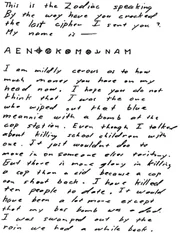 This is the Zodiac speaking
By the way have you cracked
the last cipher I sent you?
My name is —
A E N ⊕ ⊗ K ⊗ M ⊗ ⅃ N A M
I am mildly cerous as to how
much money you have on my
head now. I hope you do not
think that I was the one
who wiped out that blue
meannie with a bomb at the
cop station. Even though I talked
about killing school children with
one. It just wouldnt doo to
move in on someone elses teritory.
But there is more glory in killing
a cop than a cid because a cop
can shoot back. I have killed
ten people to date. It would
have been a lot more except
that my bus bomb was a dud.
I was swamped out by the
rain we had a while back.